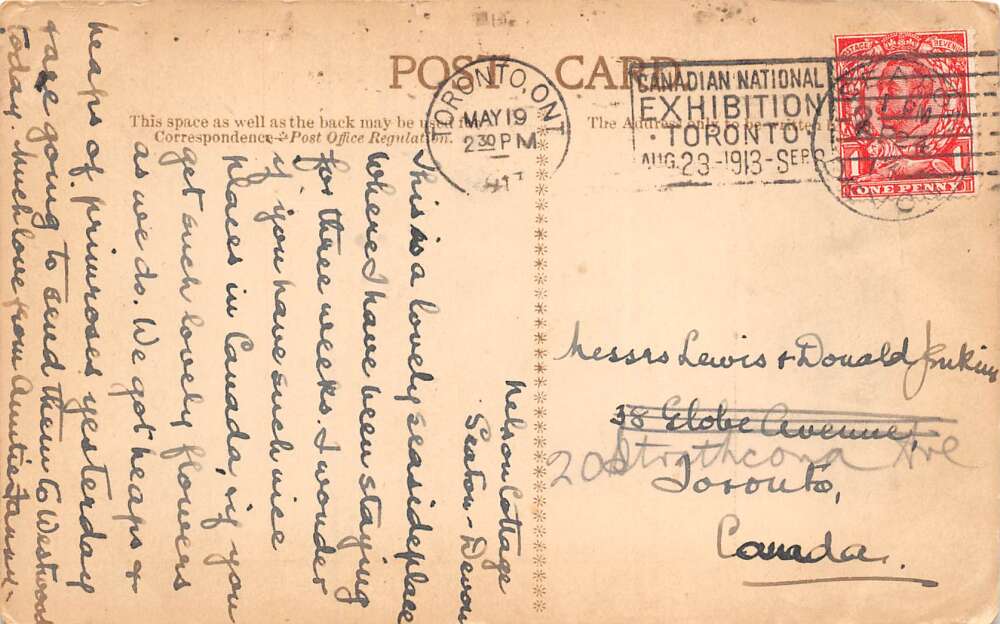 POST CARD
This space as well as the back may be used for
Correspondence Post Office Regulation.
The Address only to be
TORONTO, ONT
MAY 19
2 30 PM
CANADIAN NATIONAL
EXHIBITION
TORONTO
AUG. 23 - 1913 - SEP. 8
POSTAGE REVENUE
1 1
ONE PENNY
Nelson Cottage
Seaton - Devon
This is a lovely seaside place
where I have been staying
for three weeks. I wonder
if you have such nice
places in Canada, & if you
get such lovely flowers
as we do. We got heaps &
heaps of primroses yesterday
& are going to send them to Westwood
today. Much love from Auntie Fannie.
Messrs Lewis & Donald Jenkins
38 Globe Avenue,
20 Strathcona Ave
Toronto,
Canada.